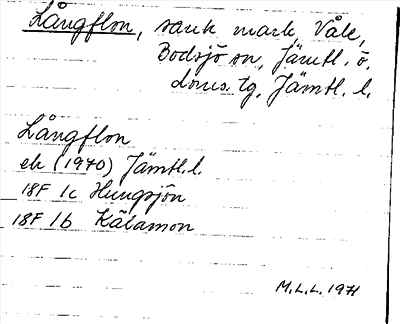 Långflon, sank mark, Våle,
Bodsjö sn, Jämtl. ö.
doms. tg, Jämtl. l.
Långflon
ek (1940) Jämtl. l.
18F 1c Hungsjön
18F 1b Kälamon
M.L.L. 1971